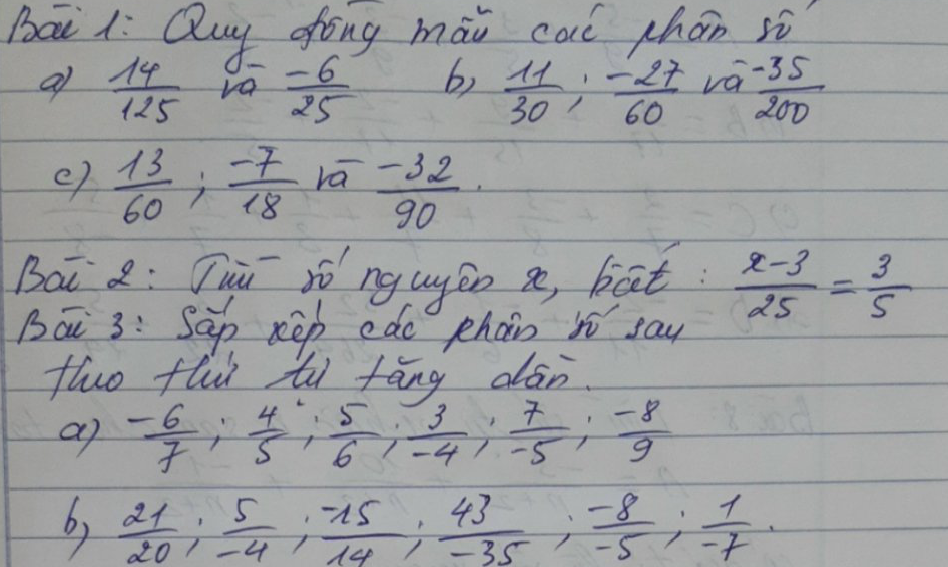 Bài 1: Quy đồng mẫu các phân số
a) 14/125 và -6/25 b, 11/30 ; -27/60 và -35/200
c) 13/60 ; -7/18 và -32/90 .
Bài 2: Tìm số nguyên x, biết : x-3/25 = 3/5
Bài 3: Sắp xếp các phân số sau
theo thứ tự tăng dần.
a) -6/7 ; 4/5 ; 5/6 ; 3/-4 ; 7/-5 ; -8/9
b, 21/20 ; 5/-4 ; -15/14 ; 43/-35 ; -8/-5 ; 1/-7 .